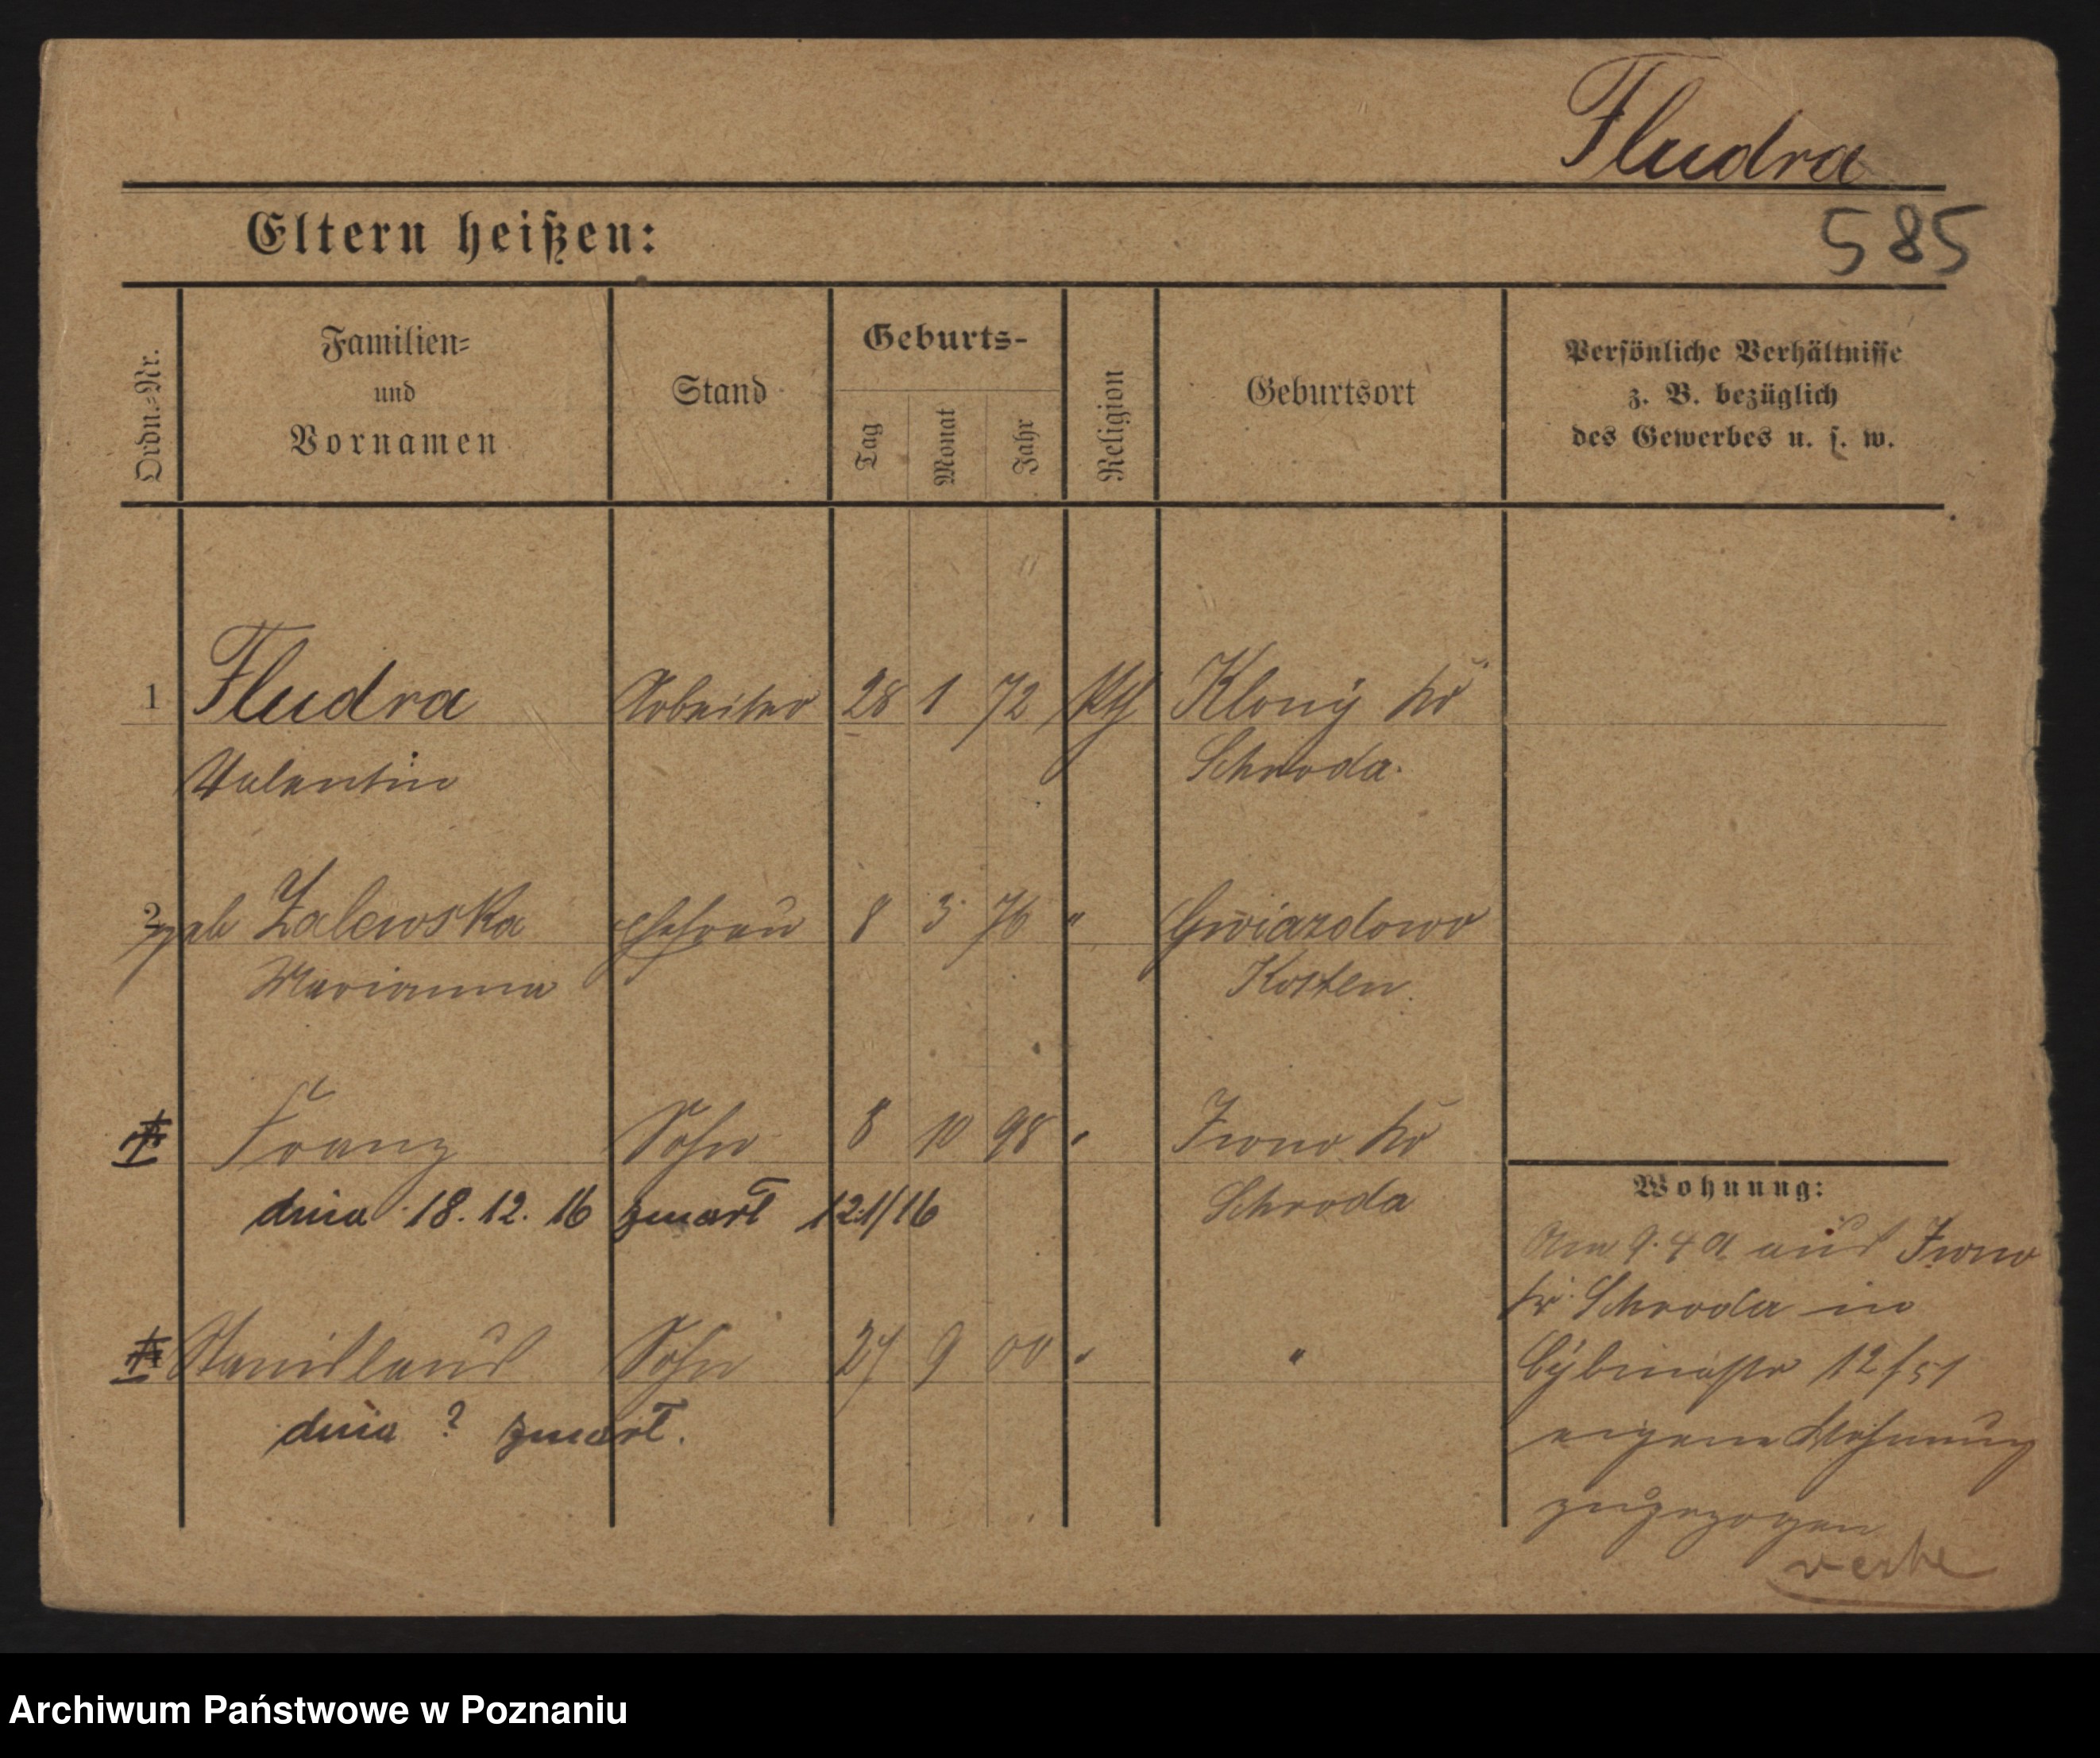 Fludra
Eltern heißen:
585
Ordn.-Nr.
Familien-
und
Vornamen
Stand
Geburts-
Tag
Monat
Jahr
Religion
Geburtsort
Persönliche Verhältnisse
z. B. bezüglich
des Gewerbes u. s. w.
1 Fludra Arbeiter 28 1 72 kth Klony Kr
Valentin Schroda.
2 geb Zalewska Ehefrau 8 3 76 " Gwiazdowo
Marianna Kosten.
Franz Sohn 8 10 98 " Iwno Kr
dnia 18. 12. 16 zmarł 121/16 Schroda
Stanislaus Sohn 27 9 00 " "
dnia ? zmarł.
Wohnung:
Am 9. 4 aus Iwno
Kr. Schroda in
Cybinastr 12/51
eigene Wohnung
zugezogen